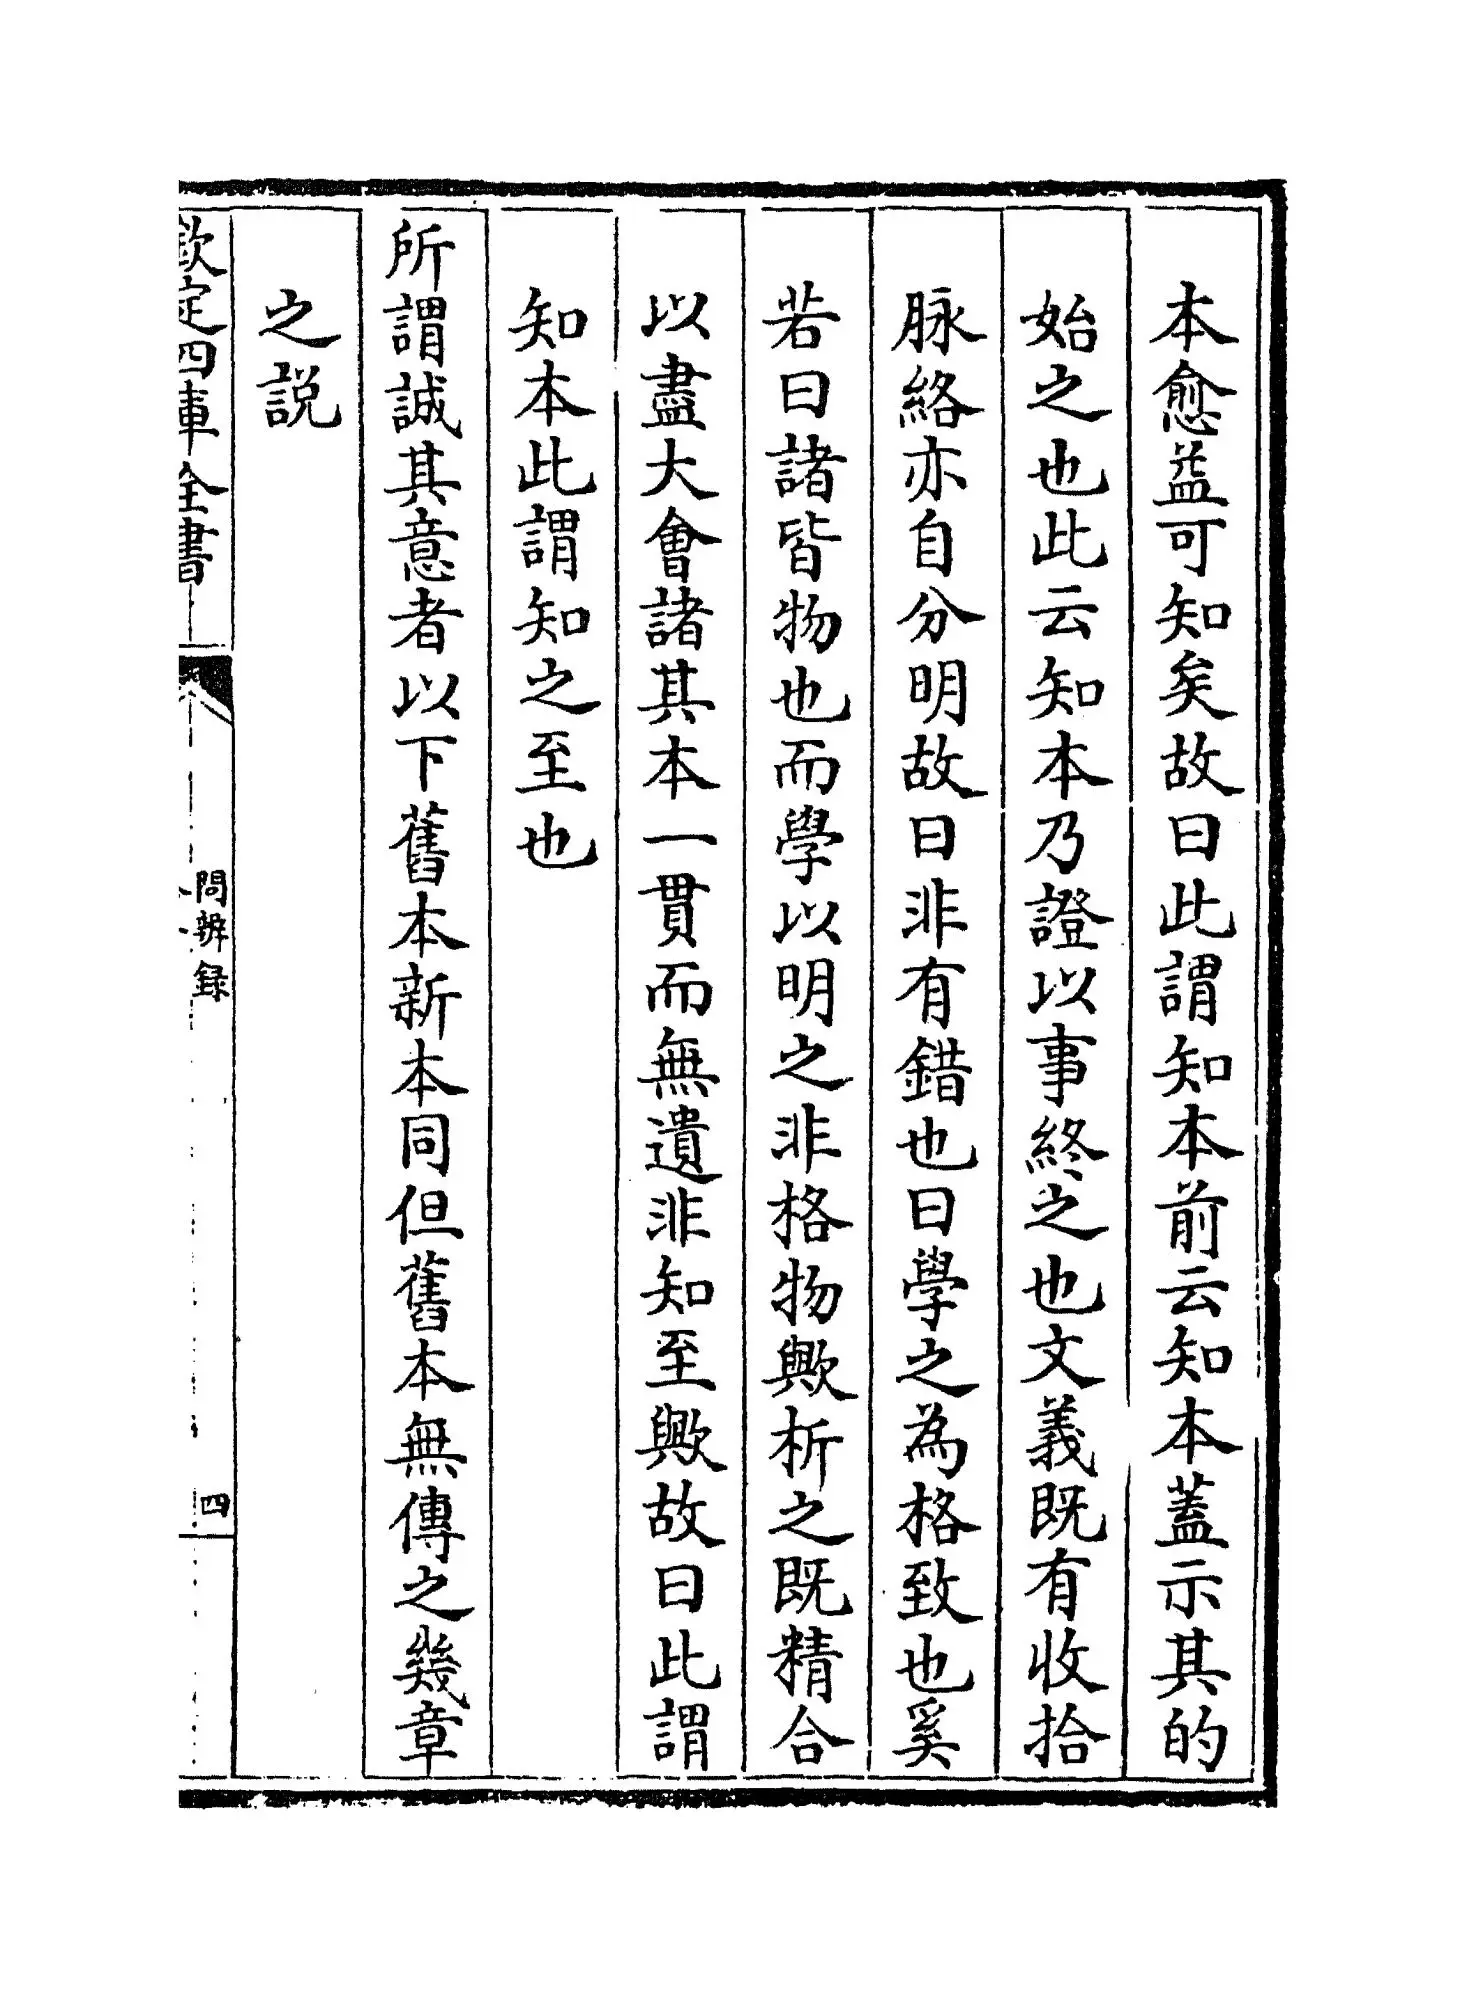 本愈益可知矣故曰此謂知本前云知本蓋示其的
始之也此云知本乃證以事終之也文義既有收拾
脉絡亦自分明故曰非有錯也曰學之為格致也奚
若曰諸皆物也而學以明之非格物歟析之既精合
以盡大會諸其本一貫而無遺非知至歟故曰此謂
知本此謂知之至也
所謂誠其意者以下舊本新本同但舊本無傳之幾章
之説
欽定四庫全書
問辨録
四